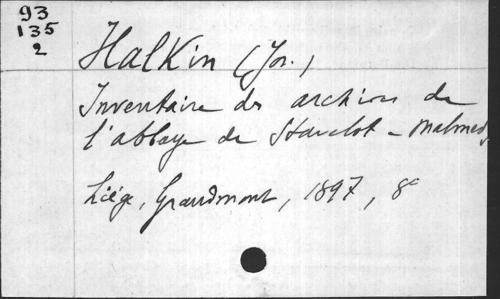 93
135
2
Halkin (Jos.)
Inventaire des archives de
l'abbaye de Stavelot-Malmedy
Liége, Grandmont, 1897, 8°